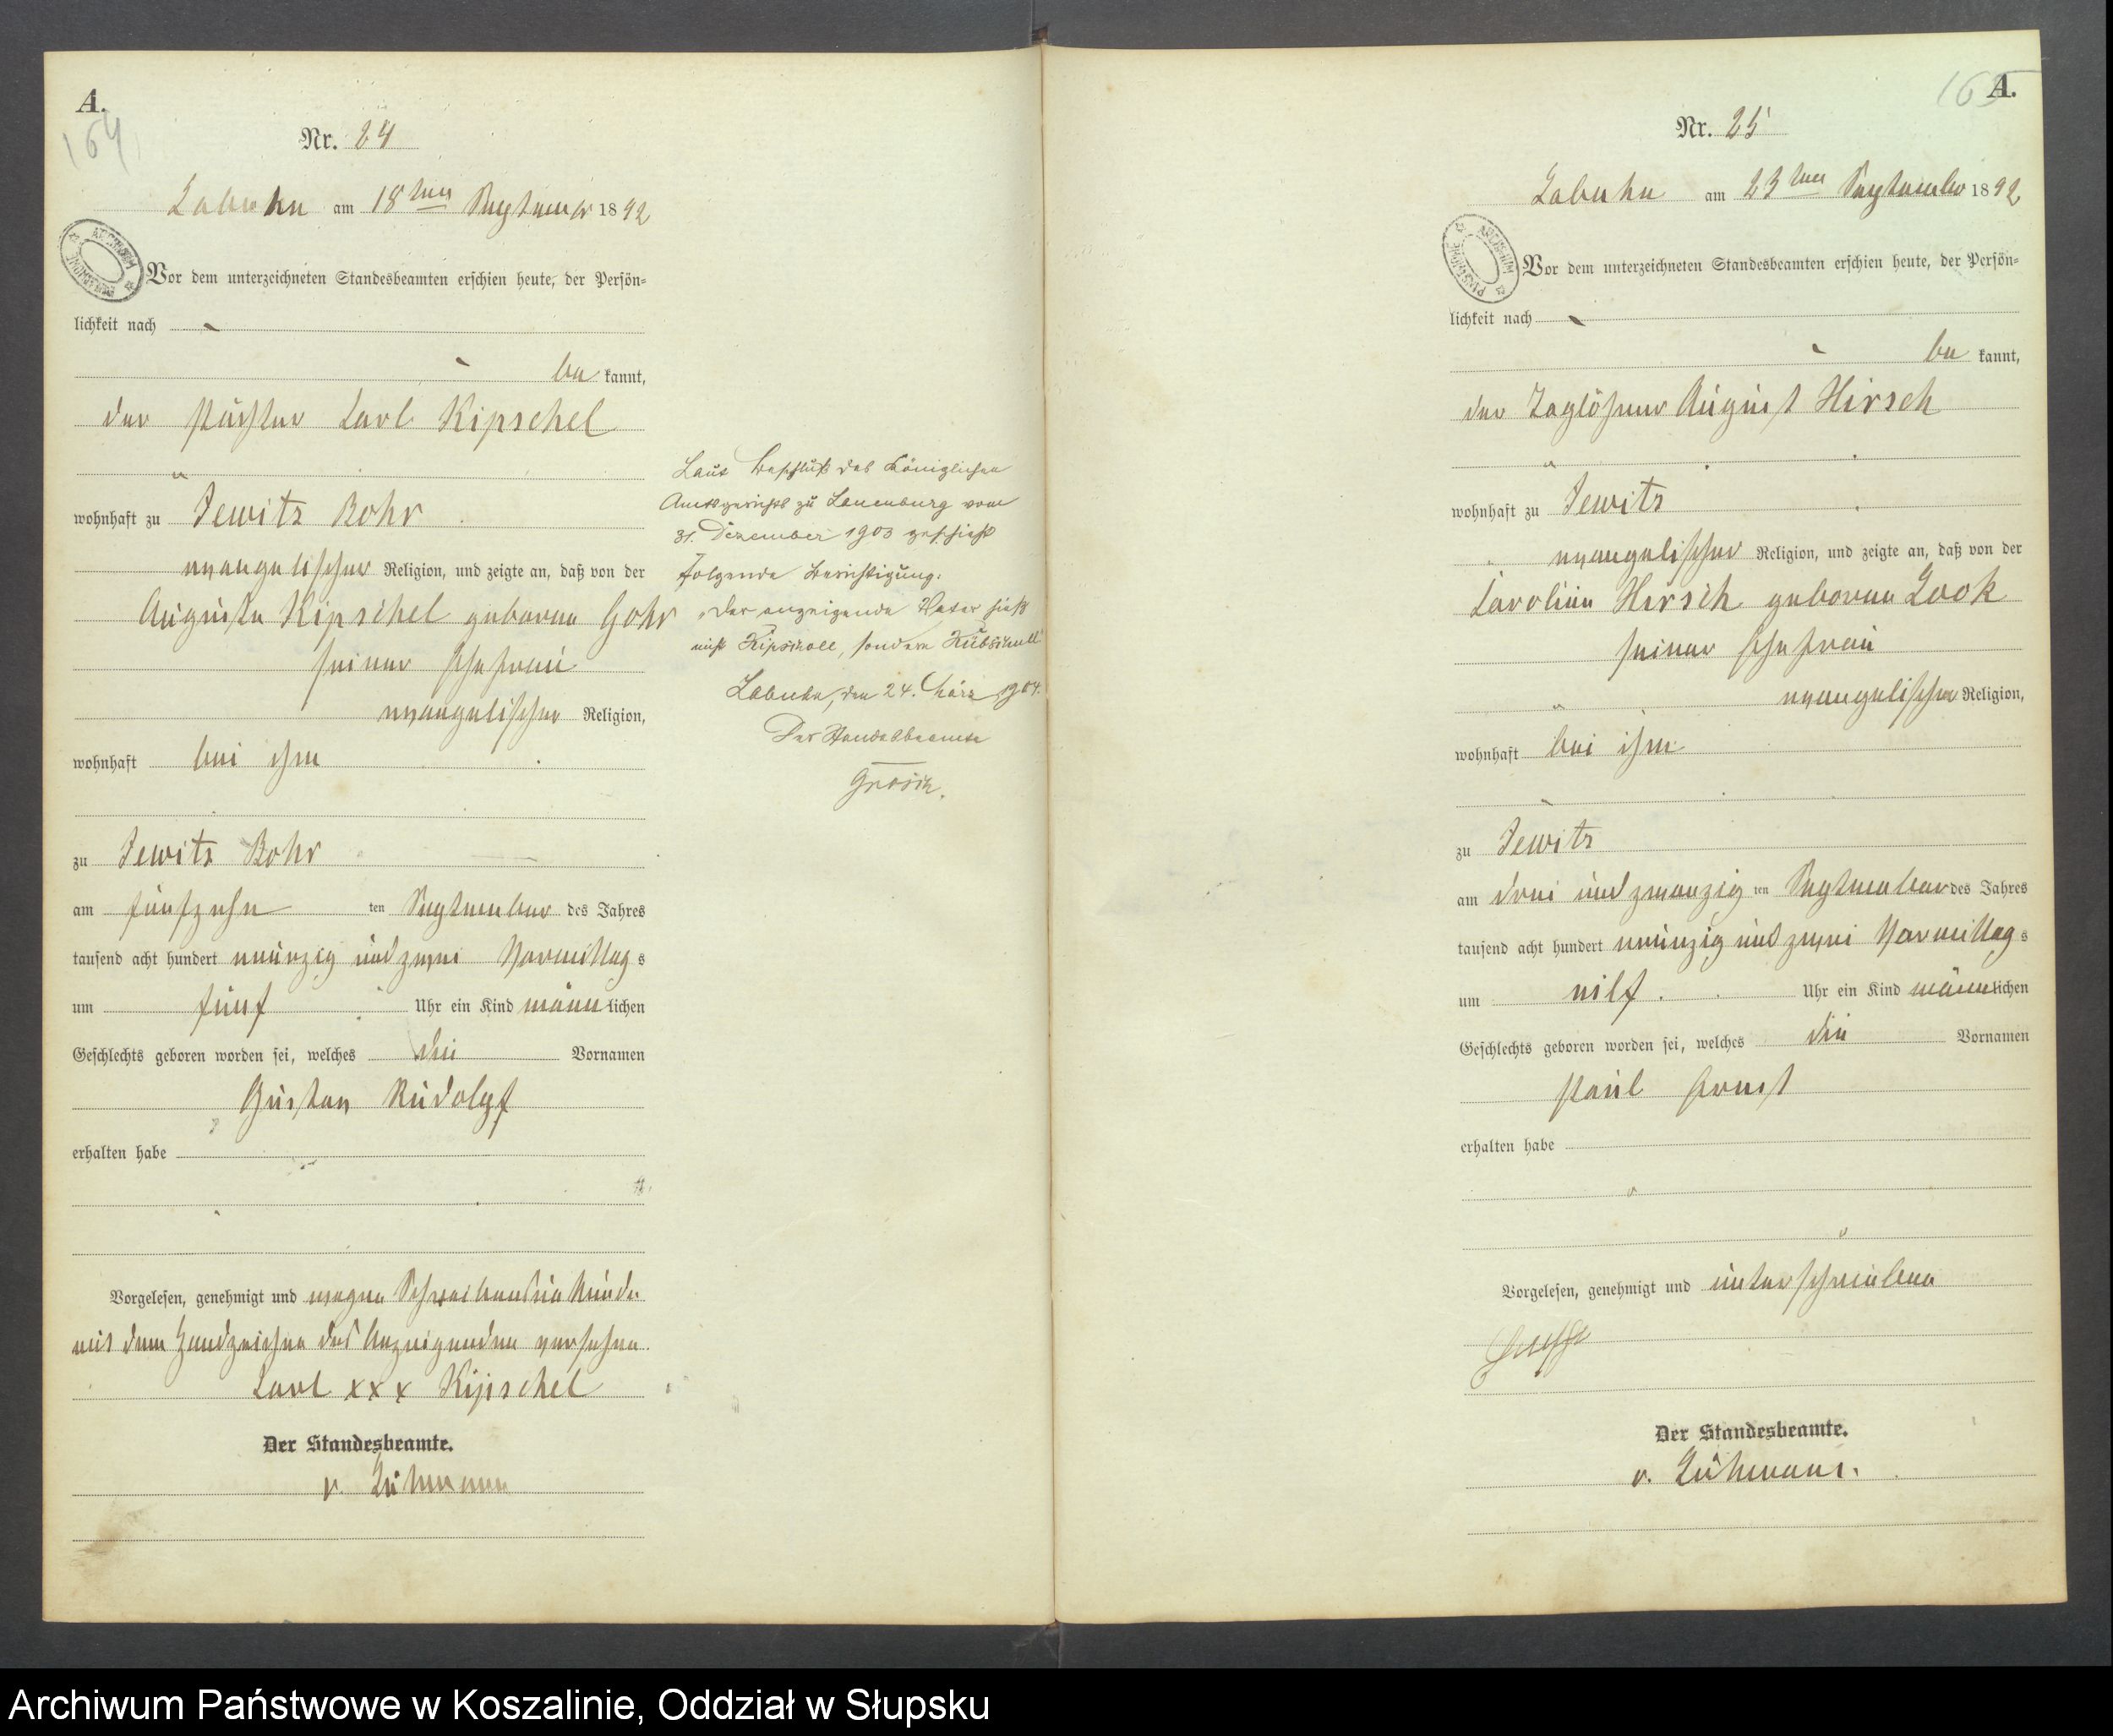 A.
164
Nr. 24
Labuhn am 18ten September 1892
Vor dem unterzeichneten Standesbeamten erschien heute, der Persön-
lichkeit nach
be kannt,
der Pächter Carl Kipschel
wohnhaft zu Jewitz Bohr
evangelischer Religion, und zeigte an, daß von der
Auguste Kipschel geborene Gohr
seiner Ehefrau
evangelischer Religion,
wohnhaft bei ihm
zu Jewitz Bohr
am fünfzehn ten September des Jahres
tausend acht hundert neunzig und zwei Vormittag s
um fünf Uhr ein Kind männ lichen
Geschlechts geboren worden sei, welches die Vornamen
Gustav Rudolpf
erhalten habe
Vorgelesen, genehmigt und wegen Schreibensunkunde
mit dem Handzeichen des Anzeigenden versehen.
Carl xxx Kipschel
Der Standesbeamte.
v.
Laut Beschluß des Königlichen
Amtsgerichts zu Lauenburg vom
31. Dezember 1903 geschieht
folgende Berichtigung:
"Der anzeigende Vater heißt
nicht Kipscholl, sondern Kübschull"
Labuhn, den 24. März 1904.
Der Standesbeamte
165
A.
Nr. 25
Labuhn am 23ten September 1892
Vor dem unterzeichneten Standesbeamten erschien heute, der Persön-
lichkeit nach
be kannt,
der Taglöhner August Hirsch
wohnhaft zu Jewitz
evangelischer Religion, und zeigte an, daß von der
Caroline Hirsch geborene Look
seiner Ehefrau
evangelischer Religion,
wohnhaft bei ihm
zu Jewitz
am drei und zwanzig ten September des Jahres
tausend acht hundert neunzig und zwei Vormittag s
um eilf Uhr ein Kind männ lichen
Geschlechts geboren worden sei, welches die Vornamen
Paul Ernst
erhalten habe
Vorgelesen, genehmigt und unterschrieben
Der Standesbeamte.
v.
Archiwum Państwowe w Koszalinie, Oddział w Słupsku